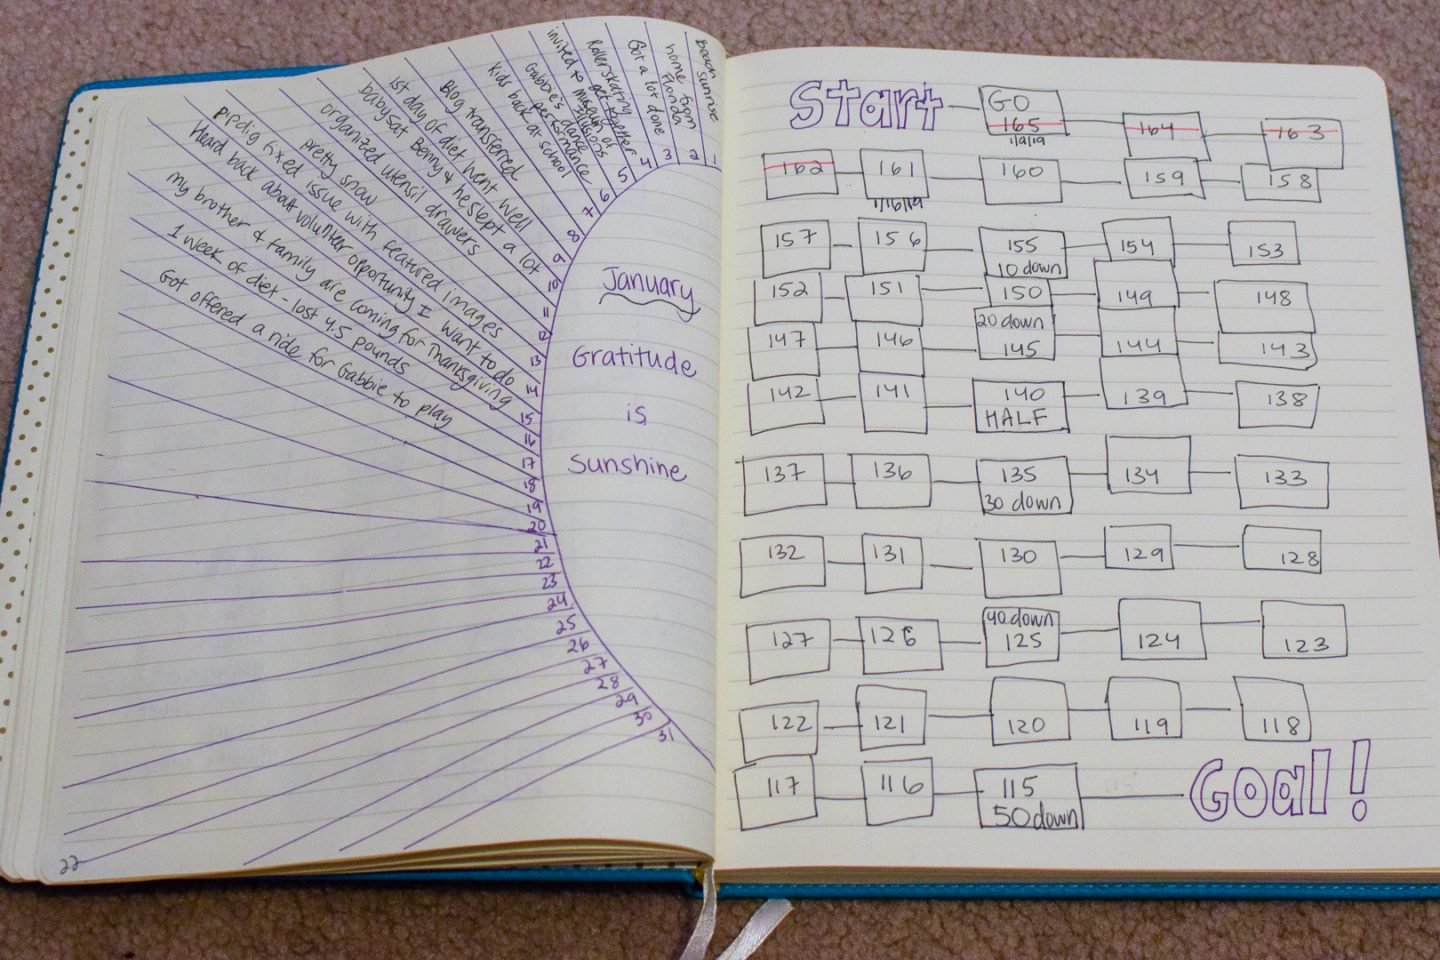 Beach sunrise 1
home from Florida 2
Got a lot done 3
Roller skating get together 4
invited to museum of illusions 5
Gabbie's dance performance 6
kids back at school 7
Blog transferred 8
1st day of diet went well 9
babysat Benny & he slept a lot 10
organized utensil drawers 11
pretty snow 12
pipdig fixed issue with featured images 13
Heard back about volunteer opportunity I want to do 14
my brother & family are coming for Thanksgiving 15
1 week of diet - lost 4.5 pounds 16
Got offered a ride for Gabbie to play 17
18
19
20
21
22
23
24
25
26
27
28
29
30
31
January
Gratitude
is
Sunshine
22
Start GO
165 164 163
1/9/19
162 161 160 159 158
1/16/19
157 156 155 154 153
10 down
152 151 150 149 148
20 down
147 146 145 144 143
142 141 140 139 138
HALF
137 136 135 134 133
30 down
132 131 130 129 128
40 down
127 126 125 124 123
122 121 120 119 118
117 116 115 Goal!
50 down